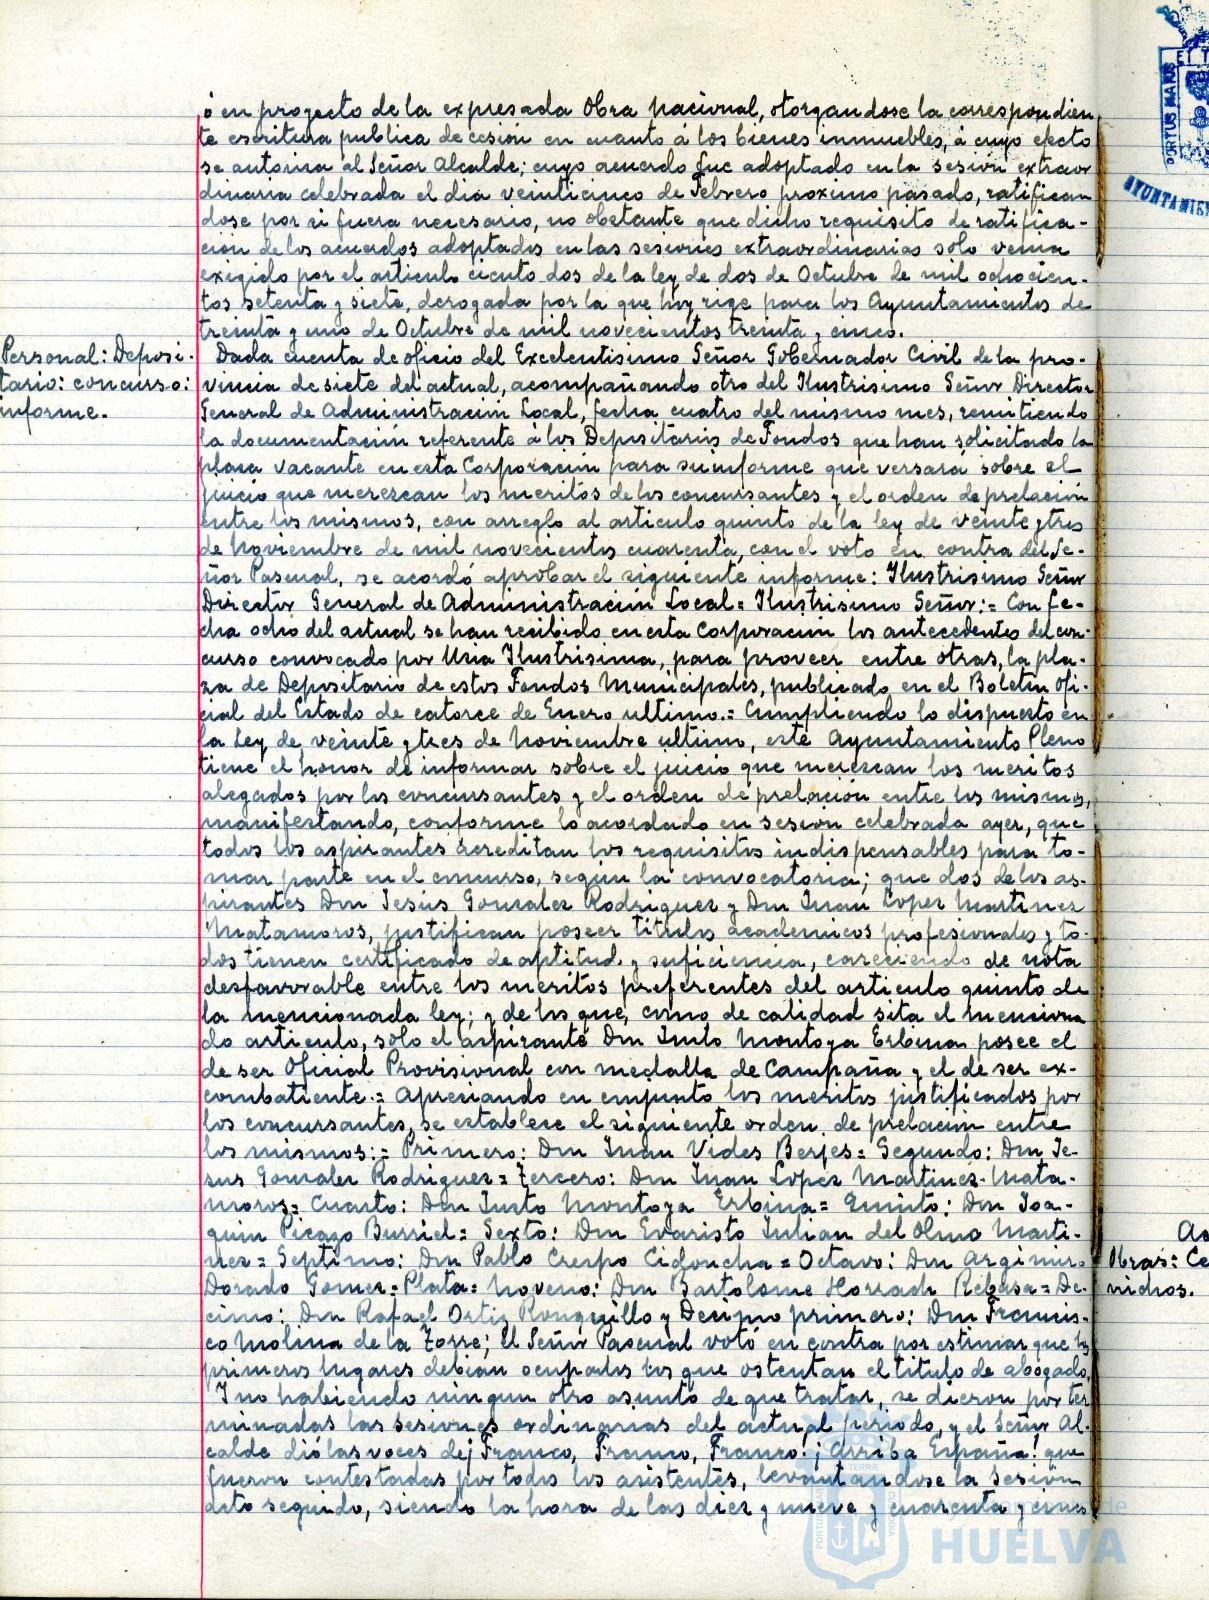 ó en proyecto de la expresada Obra Nacional, otorgandose la correspondien
te escritura publica de cesión en cuanto á los bienes inmuebles, á cuyo efecto
se autoriza al Señor Alcalde; cuyo acuerdo fue adoptado en la sesión extraor
dinaria celebrada el dia veinticinco de Febrero proximo pasado, ratifican
dose por si fuera necesario, no obstante que dicho requisito de ratifica-
ción de los acuerdos adoptados en las sesiones extraordinarias solo venia
exigido por el articulo ciento dos de la ley de dos de Octubre de mil ochocien-
tos setenta y siete, derogada por la que hoy rige para los Ayuntamientos de
treinta y uno de Octubre de mil novecientos treinta y cinco.
Personal: Deposi-
tario: concurso:
informe.
Dada cuenta de oficio del Excelentisimo Señor Gobernador Civil de la pro-
vincia de siete del actual, acompañando otro del Ilustrisimo Señor Director
General de Administración Local, fecha cuatro del mismo mes, remitiendo
la documentación referente á los Depositarios de Fondos que han solicitado la
plaza vacante en esta Corporación para su informe que versará sobre el
juicio que merezcan los meritos de los concursantes y el orden de prelación
entre los mismos, con arreglo al articulo quinto de la ley de veinte y tres
de Noviembre de mil novecientos cuarenta, con el voto en contra del Se-
ñor Pascual, se acordó aprobar el siguiente informe: Ilustrisimo Señor
Director General de Administración Local = Ilustrisimo Señor: = Con fe-
cha ocho del actual se han recibido en esta Corporación los antecedentes del con-
curso convocado por Usia Ilustrisima, para proveer entre otras, la pla-
za de Depositario de estos Fondos Municipales, publicado en el Boletin Ofi-
cial del Estado de catorce de Enero ultimo. = Cumpliendo lo dispuesto en
la Ley de veinte y tres de Noviembre ultimo, este Ayuntamiento Pleno
tiene el honor de informar sobre el juicio que merezcan los meritos
alegados por los concursantes y el orden de prelación entre los mismos,
manifestando, conforme lo acordado en sesión celebrada ayer, que
todos los aspirantes acreditan los requisitos indispensables para to-
mar parte en el concurso, segun la convocatoria; que dos de los as-
pirantes Don Jesús Gonzalez Rodriguez y Don Juan Lopez Martinez
Matamoros, justifican poseer titulos academicos profesionales y to-
dos tienen certificado de aptitud y suficiencia, careciendo de nota
desfavorable entre los meritos preferentes del articulo quinto de
la mencionada ley; y de los que, como de calidad sita el menciona
do articulo, solo el aspirante Don Justo Montoya Erbina posee el
de ser Oficial Provisional con medalla de Campaña y el de ser ex-
combatiente. = Apreciando en conjunto los meritos justificados por
los concursantes, se establece el siguiente orden de prelacion entre
los mismos: = Primero: Don Juan Vides Berjes = Segundo: Don Je-
sus Gonzalez Rodriguez = Tercero: Don Juan Lopez Martinez-Mata-
moros = Cuarto: Don Justo Montoya Erbina = Quinto: Don Joa-
quin Picazo Burriel = Sexto: Don Evaristo Julian del Olmo Marti-
nez = Septimo: Don Pablo Crespo Cidoncha = Octavo: Don Argimiro
Dorado Gomez-Plata = Noveno: Don Bartolome Horrach Ribasa = De-
cimo: Don Rafael Ortiz Ronquillo y Decimo primero: Don Francis-
co Molina de la Torre; El Señor Pascual votó en contra por estimar que los
primeros lugares debian ocuparlos los que ostentan el titulo de abogado.
Y no habiendo ningun otro asunto de que tratar, se dieron por ter
minadas las sesiones ordinarias del actual periodo, y el Señor Al-
calde dió las voces de ¡Franco, Franco, Franco! ¡Arriba España! que
fueron contestadas por todos los asistentes, levantandose la sesion
acto seguido, siendo la hora de las diez y nueve y cuarenta y cinco
PORTUS MARIS
Obras: Ce
nichos.
HUELVA